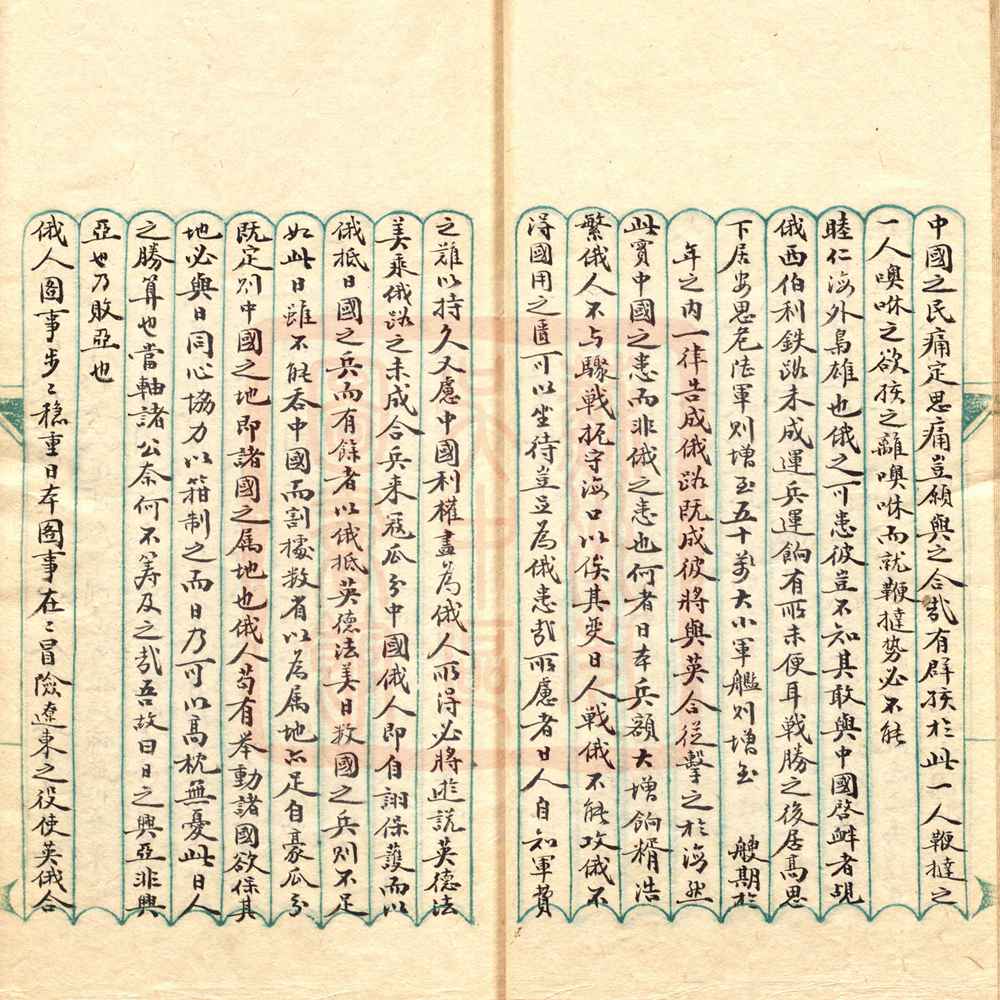 中國之民痛定思痛豈願與之合哉有群孩於此一人鞭撻之
一人噢咻之欲孩之離噢咻而就鞭撻勢必不能
睦仁海外梟雄也俄之可患彼豈不知其敢與中國啓衅者覘
俄西伯利鉄路未成運兵運餉有所未便耳戰勝之後居高思
下居安思危陸軍則增至五十萬大小軍艦則增至 艘期於
年之內一律告成俄路既成彼將與英合從擊之於海然
此實中國之患而非俄之患也何者日本兵額大增餉糈浩
繁俄人不与驟戰扼守海口以俟其变日人戰俄不能攻俄不
得國用之匱可以坐待豈足為俄患哉所慮者日人自知軍費
之難以持久又慮中國利權盡為俄人所得必將遊說英德法
美乘俄路之未成合兵来寇瓜分中國俄人即自詡保護而以
俄抵日國之兵而有餘者以俄抵英德法美日数國之兵則不足
如此日雖不能吞中國而割據数省以為属地亦足自豪瓜分
既定則中國之地即諸國之属地也俄人苟有举動諸國欲保其
地必與日同心協力以箝制之而日乃可以高枕無憂此日人
之勝算也當軸諸公奈何不筹及之哉吾故曰日之興亞非興
亞也乃敗亞也
俄人圖事步〻穩重日本圖事在〻冒險遼東之役使英俄合